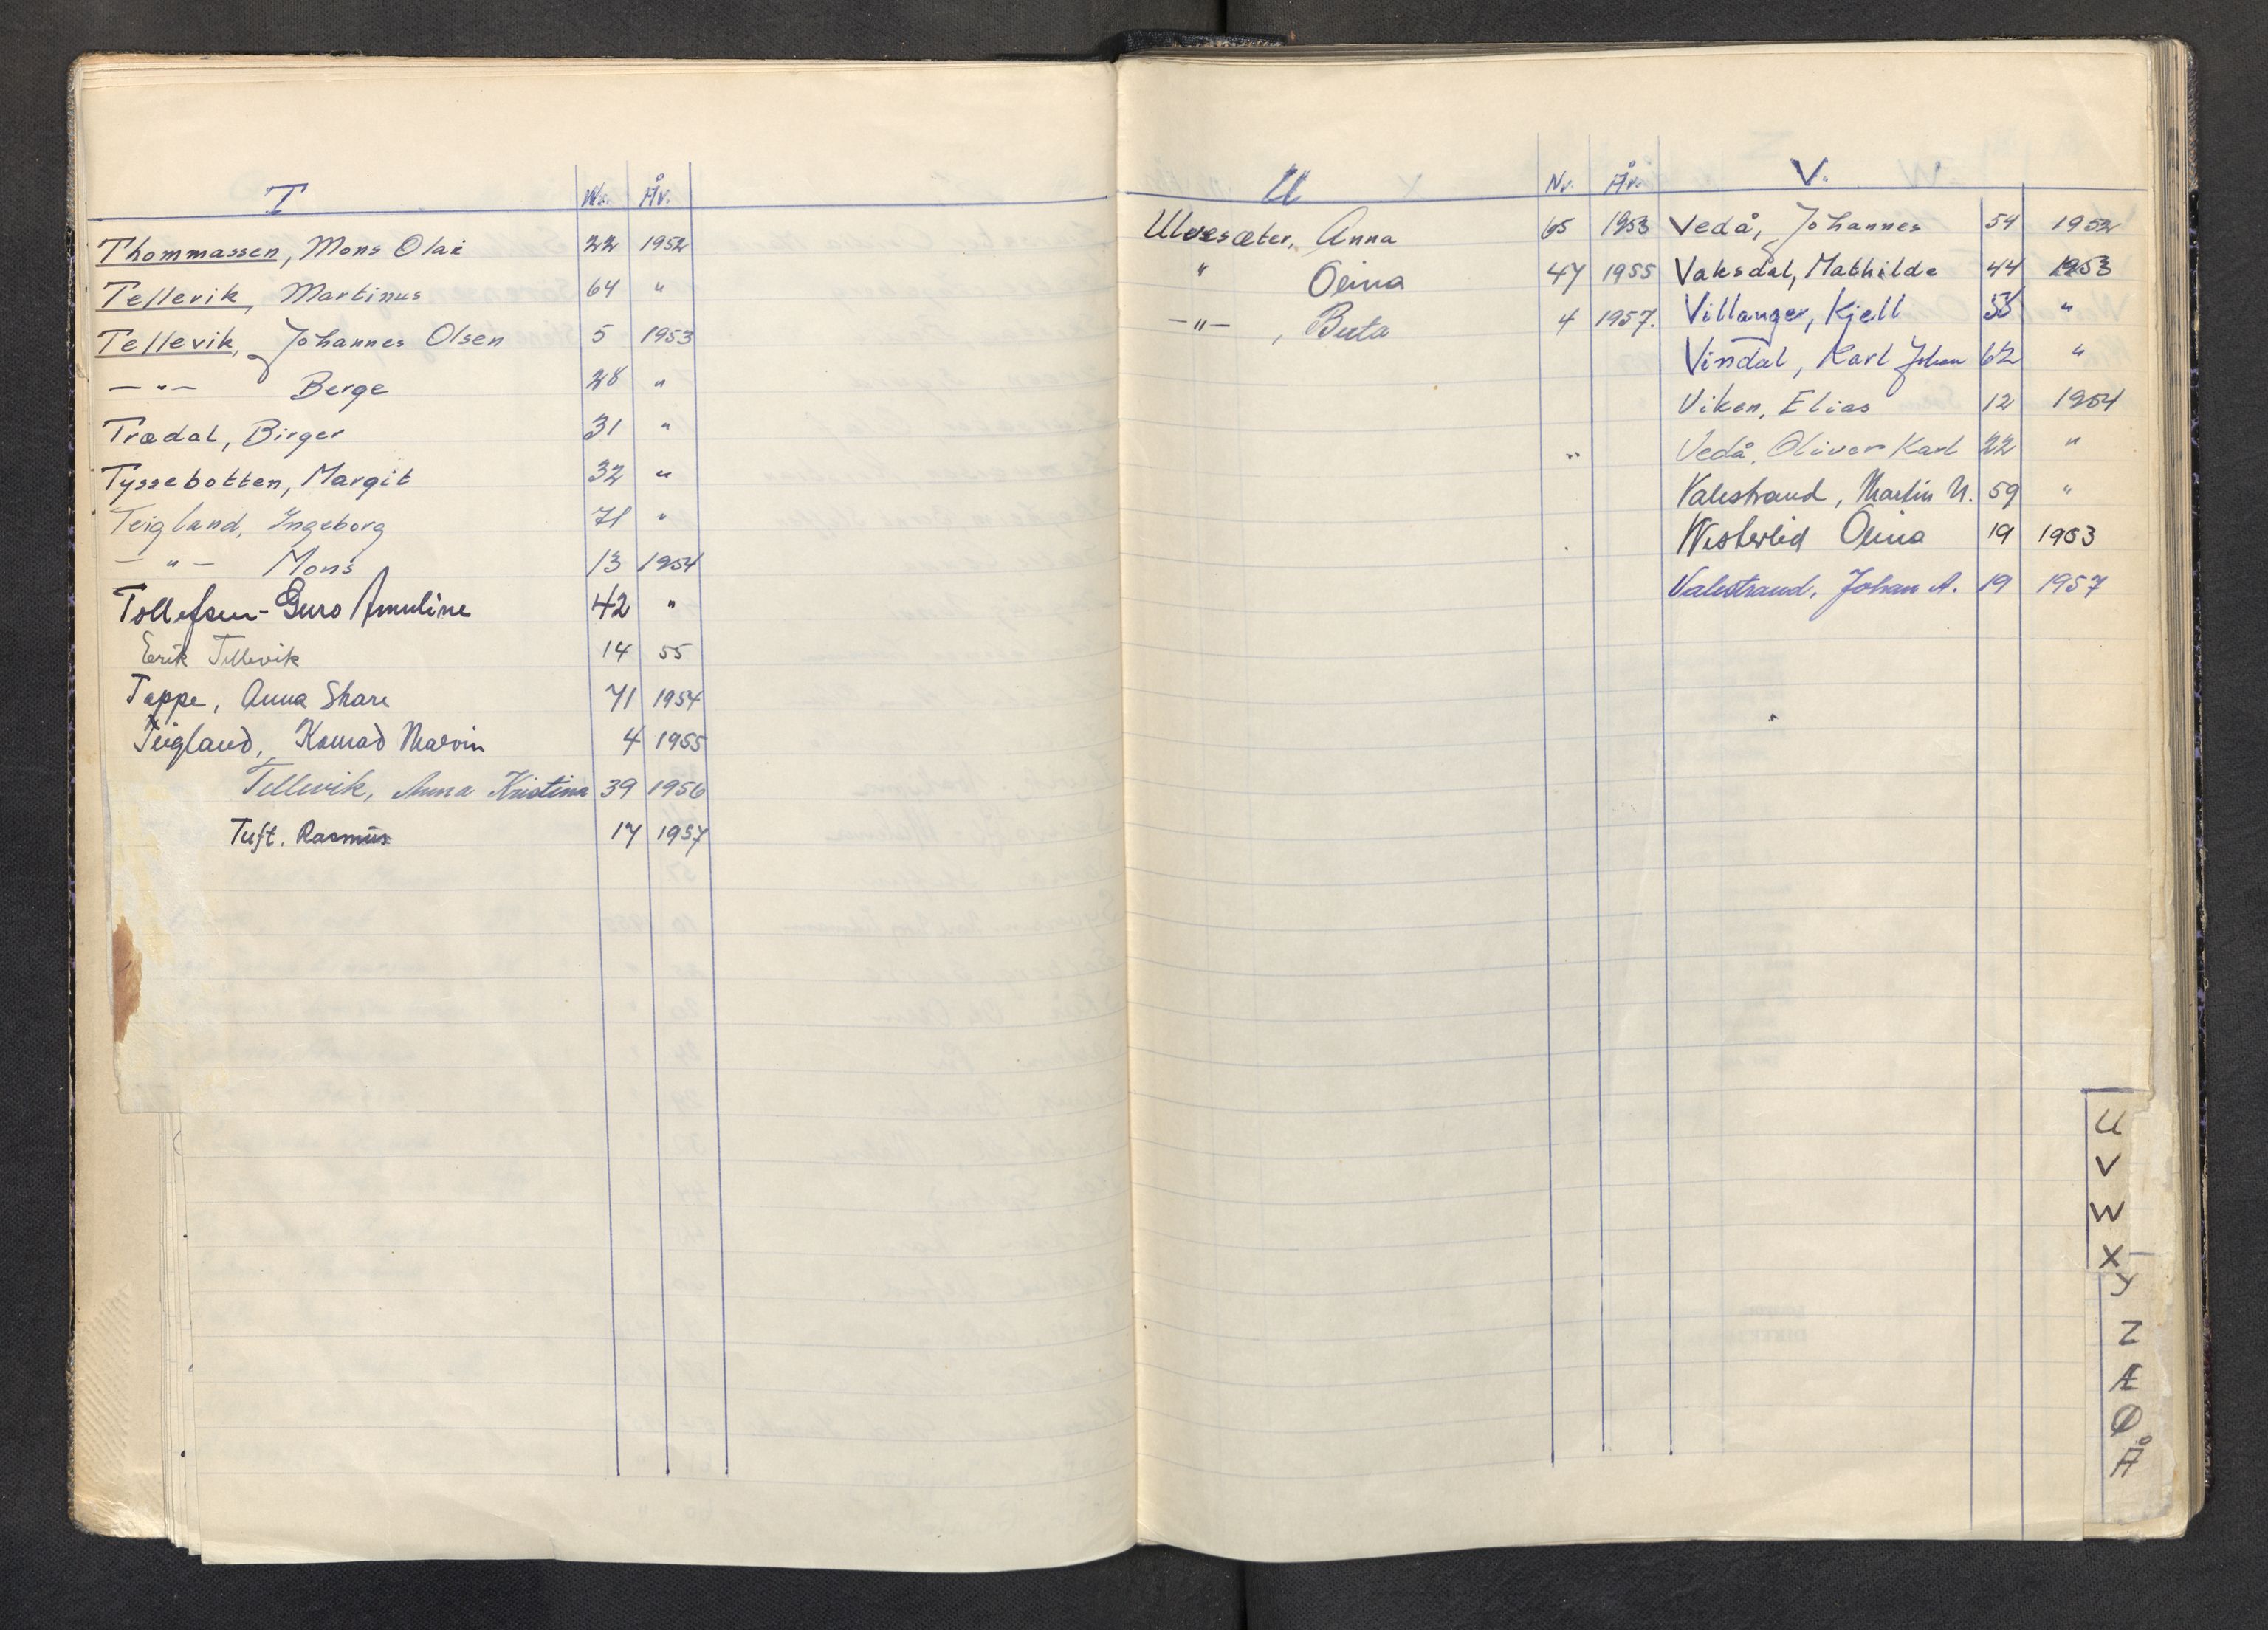 T Nr. År.
Thommassen, Mons Olai 22 1952
Tellevik, Martinus 64 "
Tellevik, Johannes Olsen 5 1953
— " — Berge 28 "
Trædal, Birger 31 "
Tyssebotten, Margit 32 "
Teigland, Ingeborg 71 "
— " — Mons 13 1954
Tollefsen - Guro Amuline 42 "
Erik Tellevik 14 55
Teppe, Anna Skare 71 1954
Teigland, Konrad Marvin 4 1955
Tellevik, Anna Kristina 39 1956
Tuft. Rasmus 17 1957
U Nr. År.
Ulvesæter, Anna 65 1953
" Olina 47 1955
— " —, Berta 4 1957.
V.
Vedå, Johannes 54 1952
Vaksdal, Mathilde 44 1953
Villanger, Kjell 58 "
Vindal, Karl Johan 62 "
Viken, Elias 12 1954
Vedå, Oliver Karl 22 "
Valestrand, Martin N. 59 "
Westerlid Olina 19 1953
Valestrand, Johan A. 19 1957
U
V
W
X
Y
Z
Æ
Ø
Å